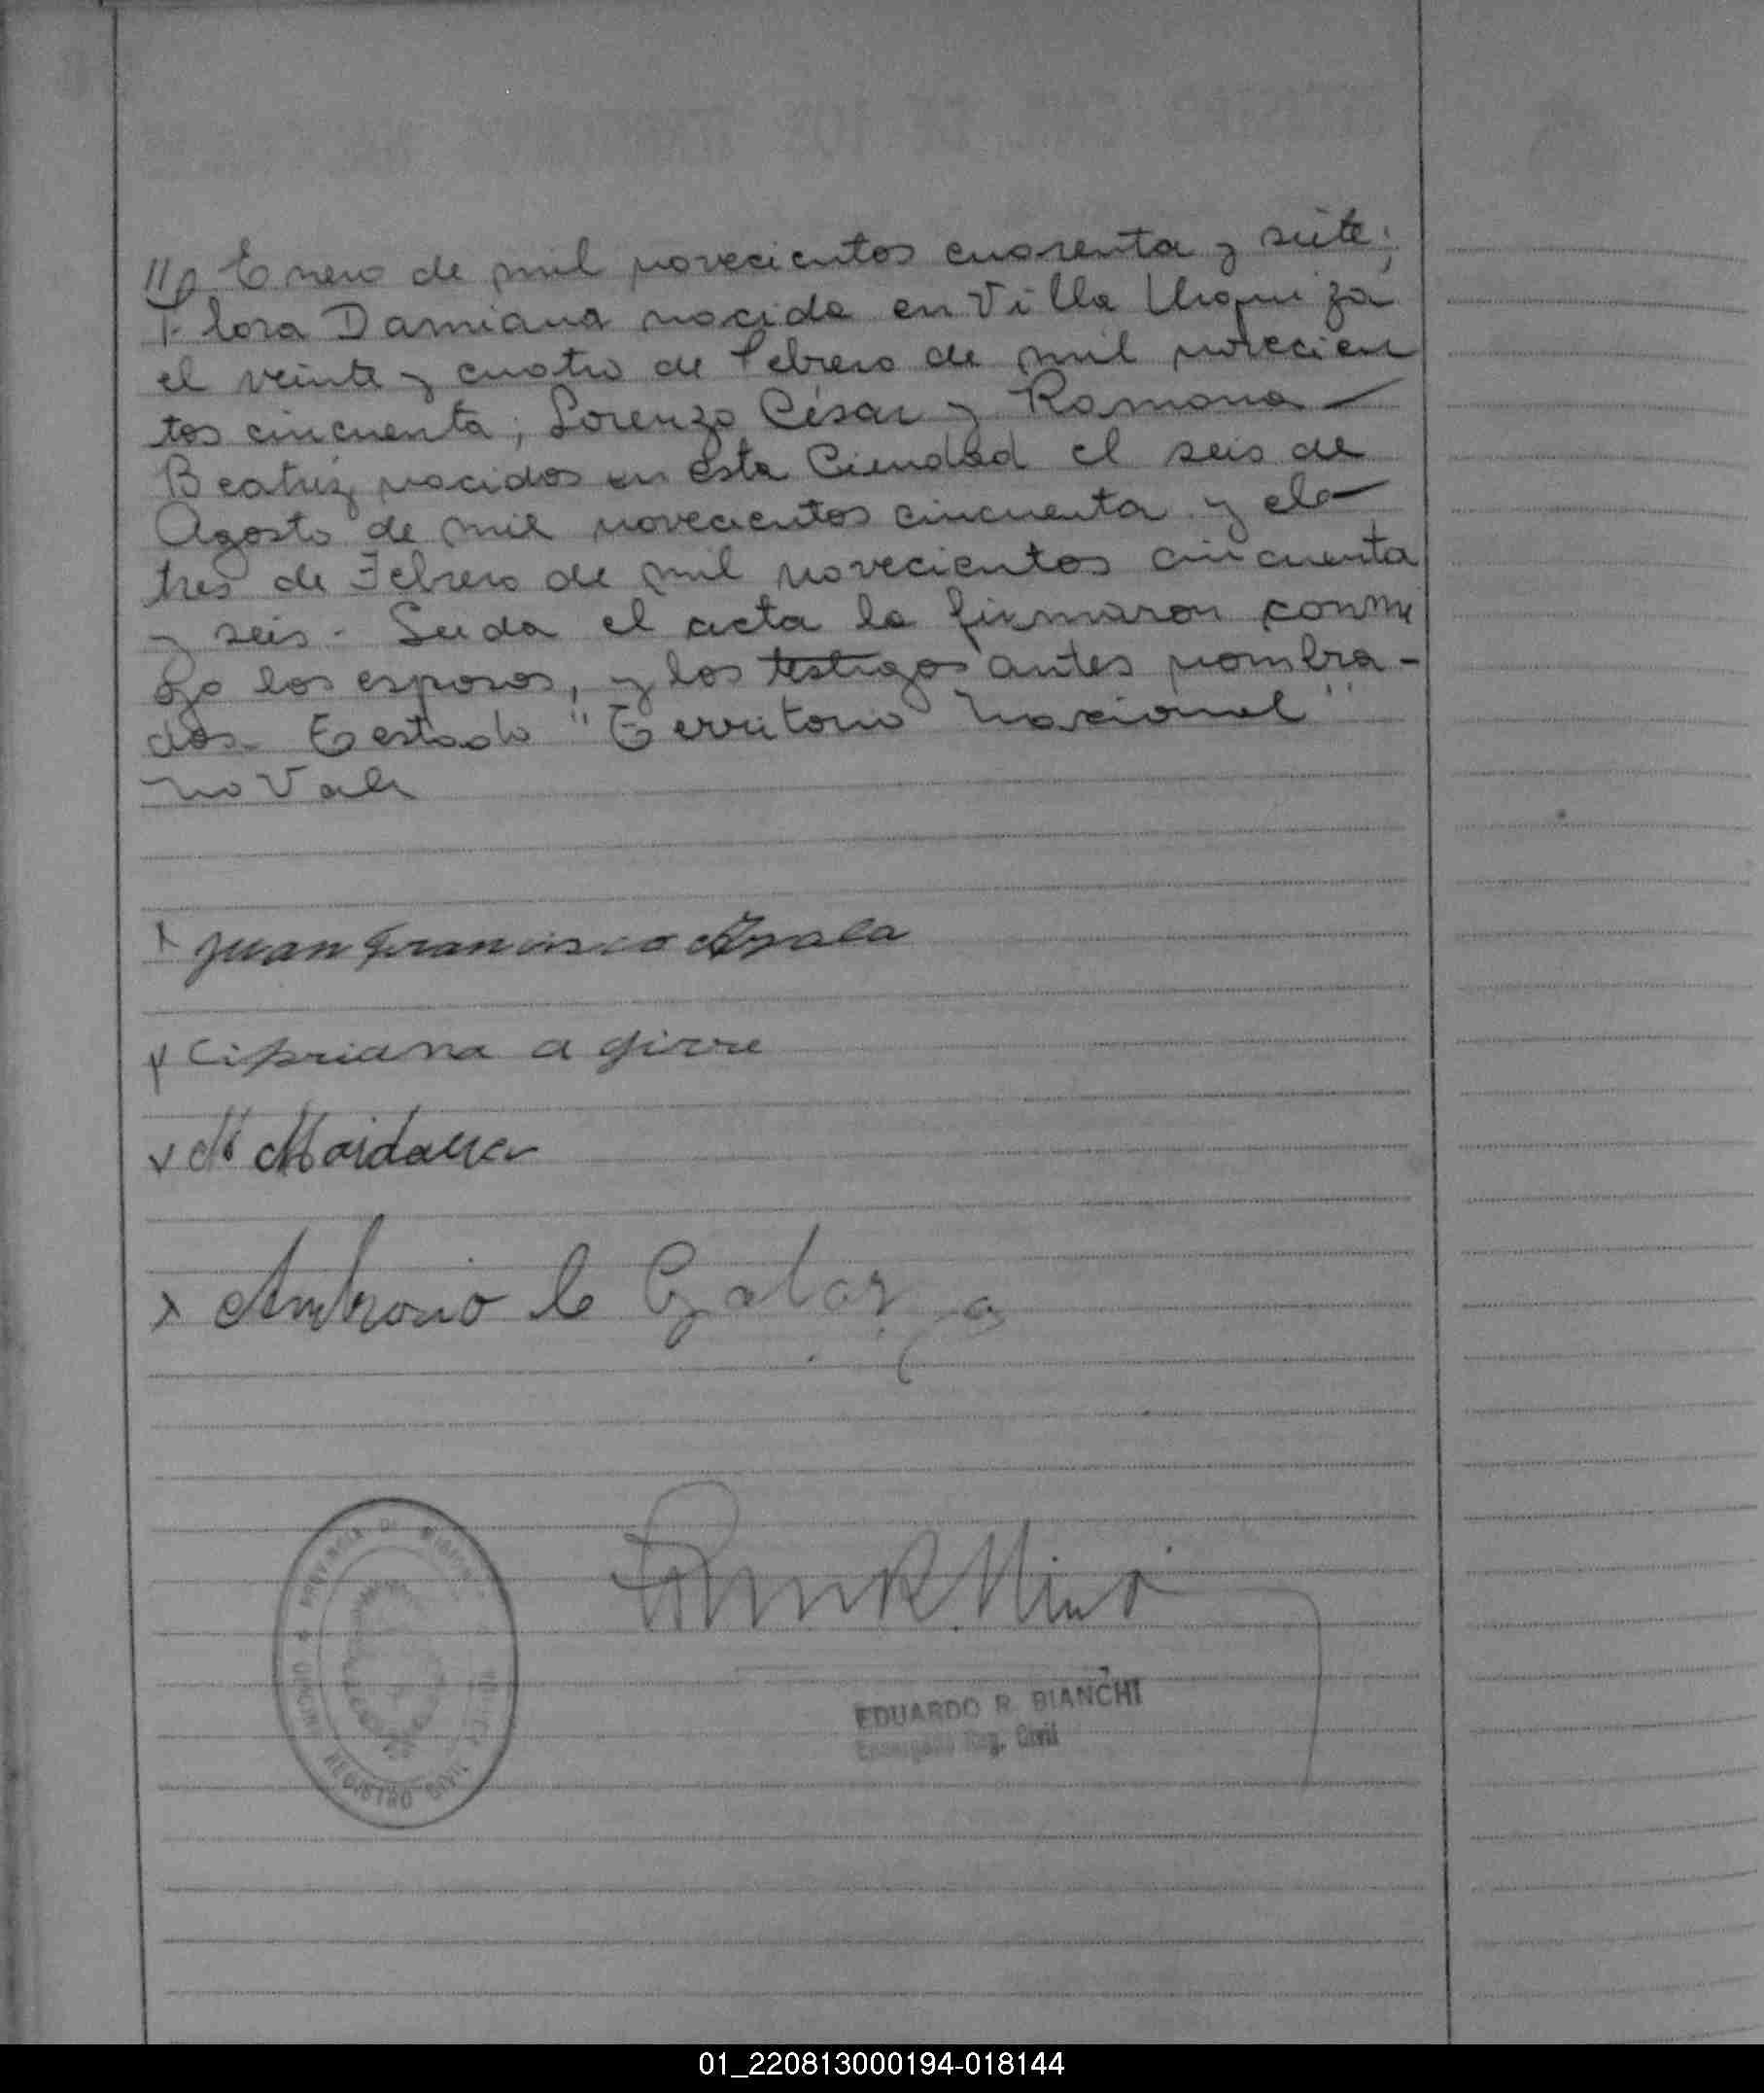 Enero de mil novecientos cuarenta y siete;
Flora Damiana nacida en Villa Urquiza
el veinte y cuatro de Febrero de mil novecien
tos cincuenta; Lorenzo César y Ramona —
Beatriz nacidos en esta Ciudad el seis de
Agosto de mil novecientos cincuenta y
tres de Febrero de mil novecientos cincuenta
y seis - Leida el acta la firmaron conmi
go los esposos, y los testigos antes nombra-
dos. Testado "Territorio Nacional"
no Vale
Juan Francisco Ayala
Cipriana a girre
M Maidana
Ambrocio Galarza
EDUARDO R. BIANCHI
Encargado Reg. Civil
PROVINCIA DE MISIONES
REGISTRO CIVIL
01_220813000194-018144